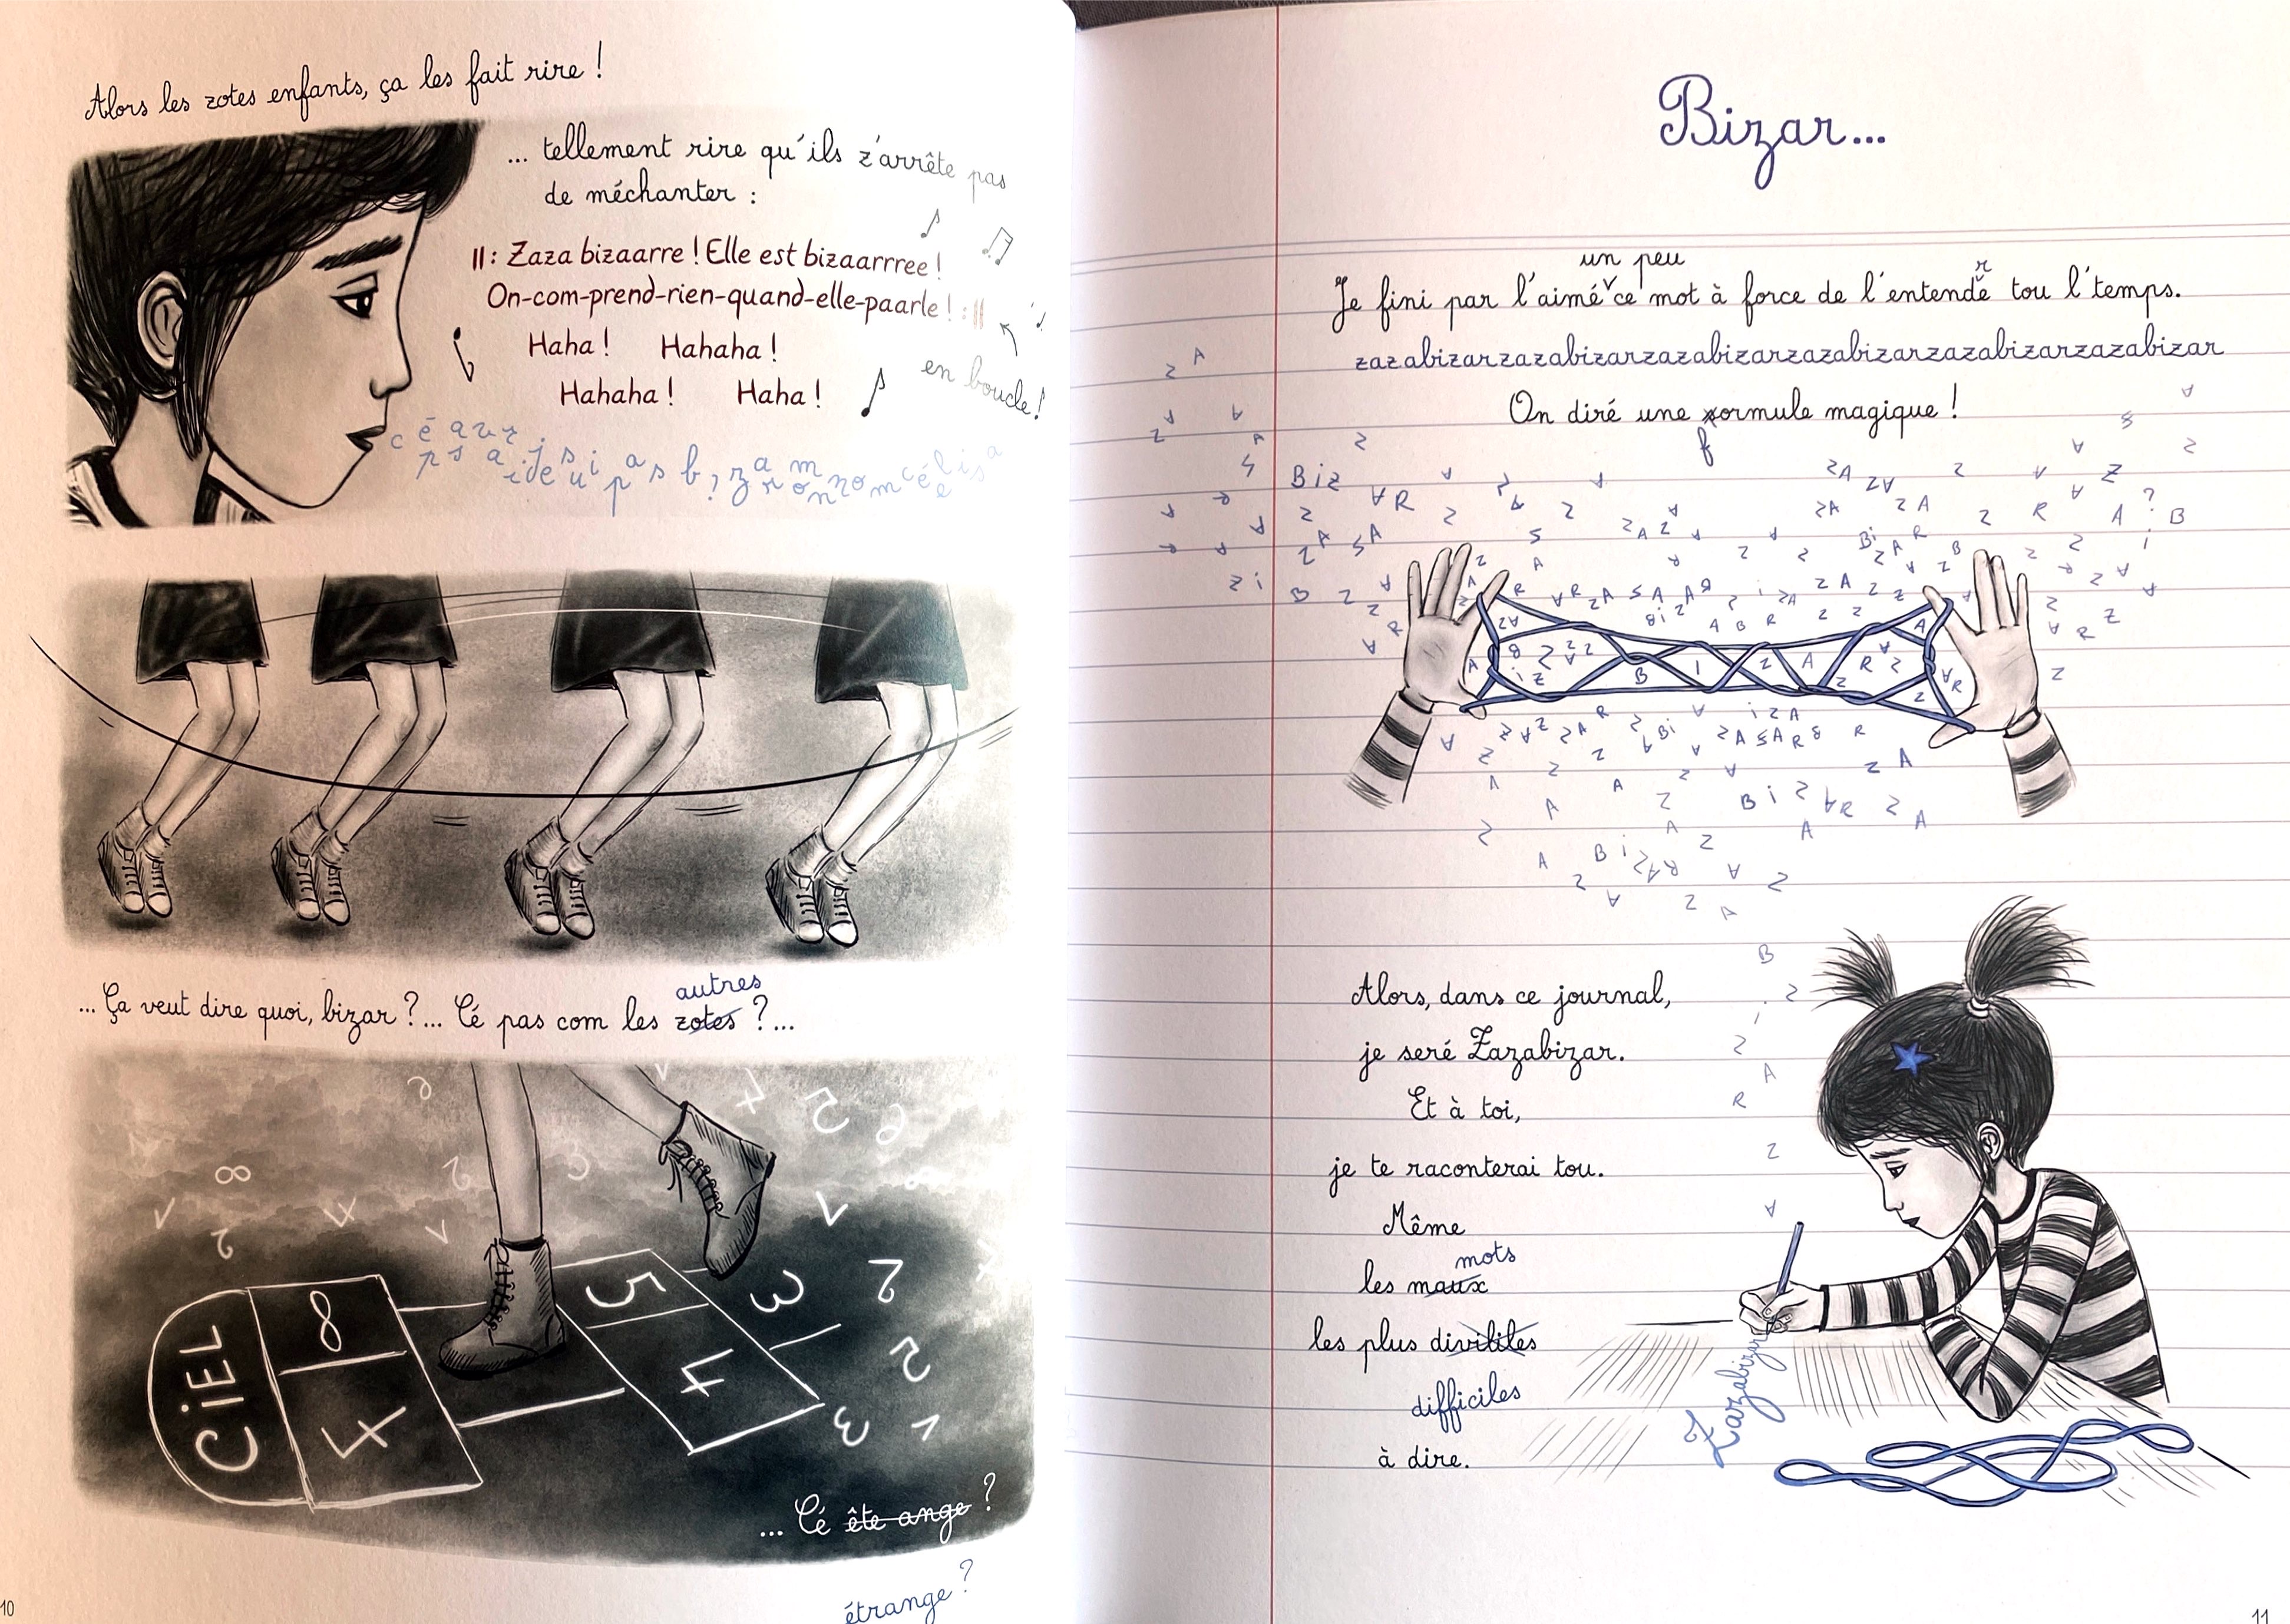 Alors les zotes enfants, ça les fait rire !
... tellement rire qu'ils z'arrête pas
de méchanter :
||: Zaza bizaarre ! Elle est bizaarrree !
On-com-prend-rien-quand-elle-paarle ! :||
Haha ! Hahaha !
en boucle !
Hahaha ! Haha !
... Ça veut dire quoi, bizar ?... Cé pas com les zotes ?...
autres
CiEL
8
7
5
4
3
... Cé ête ange ?
étrange ?
10
Bizar...
un peu
Je fini par l'aimé ce mot à force de l'entende tou l'temps.
r
zazabizarzazabizarzazabizarzazabizarzazabizarzazabizar
On diré une xormule magique !
f
Alors, dans ce journal,
je seré Zazabizar.
Et à toi,
je te raconterai tou.
Même
mots
les maux
les plus divilites
difficiles
à dire.
Zazabizar
11